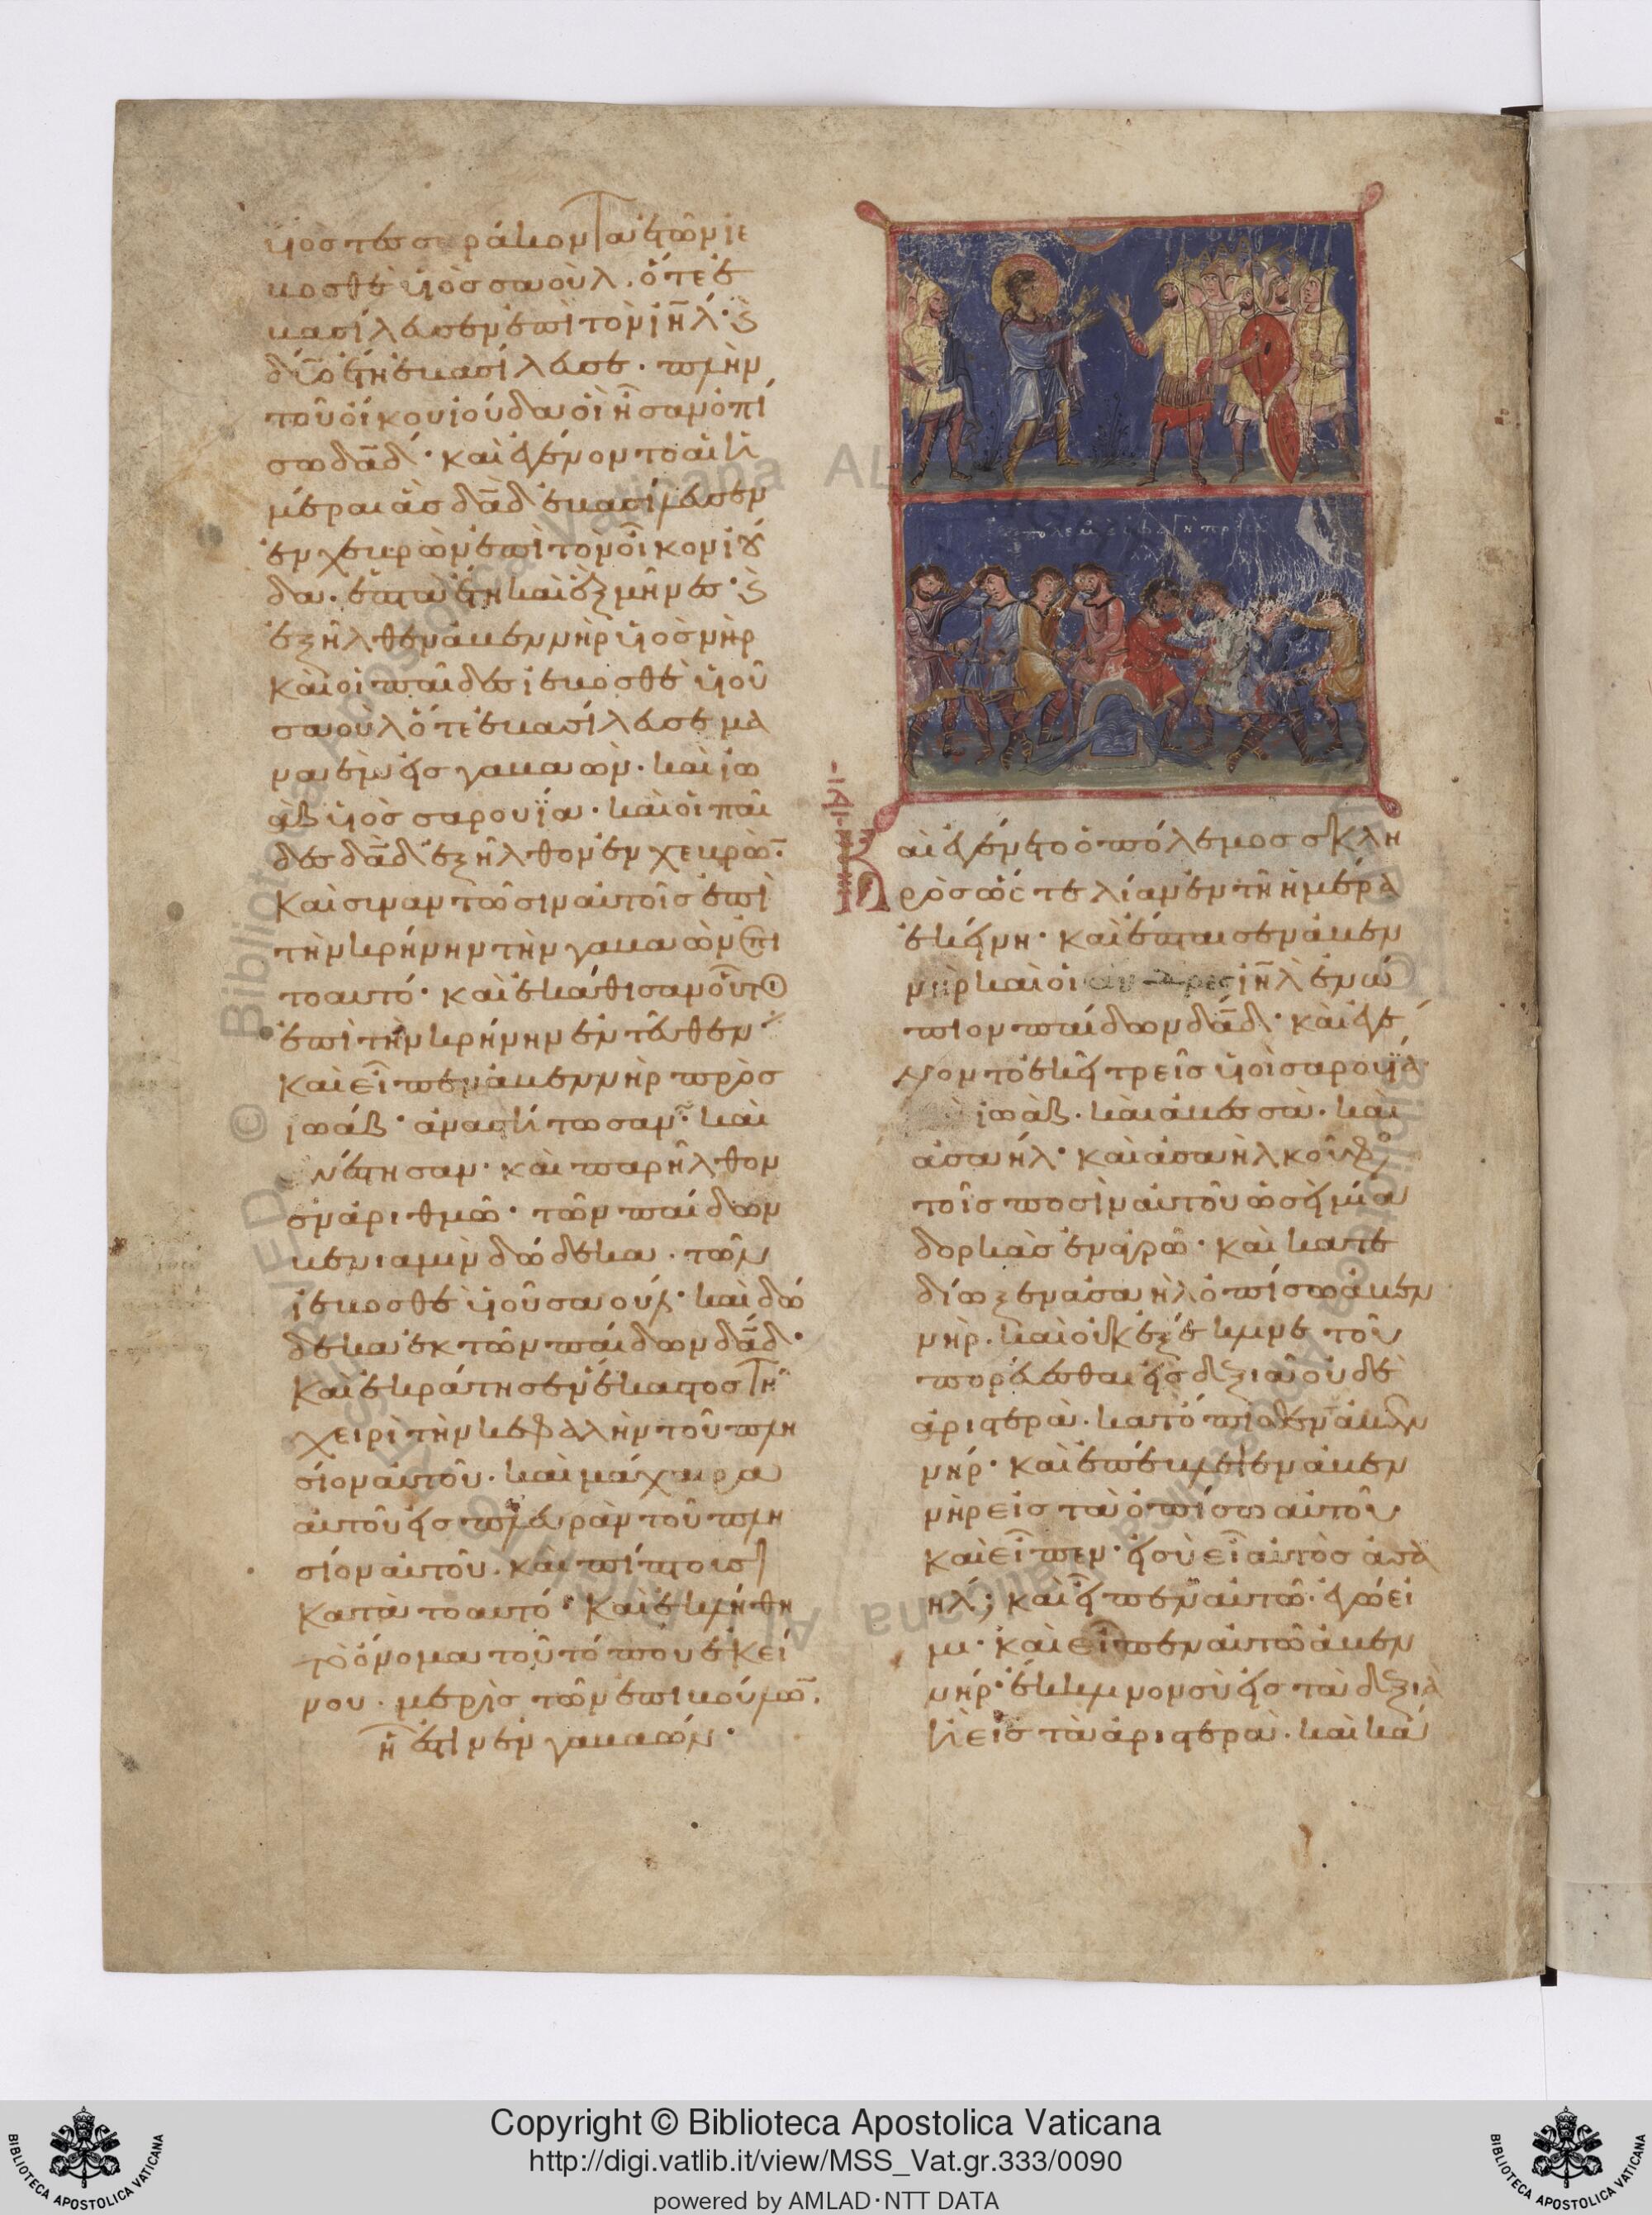 υἱὸς τεσσαράκοντα ἐτῶν ἰε
βοσθὲ υἱὸς σαοὺλ. ὅτε ἐ
βασίλευσεν ἐπὶ τὸν ἰηλ· ϗ
δύο ἔτη ἐβασίλευσε. πλὴν
τοῦ οἴκου ἰούδα οἱ ἦσαν ὀπί
σω δαδ· καὶ ἐγένοντο αἱ ἡ
μέραι ἃς δαδ ἐβασίλευσεν
ἐν χεβρὼν ἐπὶ τὸν οἶκον ἰού
δα. ἑπτὰ ἔτη καὶ ἓξ μῆνες· ϗ
ἐξῆλθεν ἀβεννὴρ υἱὸς νὴρ
καὶ οἱ παῖδες ἰεβοσθὲ υἱοῦ
σαοὺλ ὅτε ἐβασίλευσε μα
ναεὶμ εἰς γαβαών. καὶ ἰω
ὰβ υἱὸς σαρουΐα. καὶ οἱ παῖ
δες δαδ ἐξῆλθον ἐν χεβρὼ̅.
καὶ συναντῶσιν αὐτοῖς ἐπὶ
τὴν κρήνην τὴν γαβαὼν ἐπι
τοαυτό· καὶ ἐκάθισαν οὗτοι
ἐπὶ τὴν κρήνην ἐντεῦθεν·
καὶ εἶπεν ἀβεννὴρ πρὸς
ἰωάβ· ἀναστήτωσαν. καὶ
ἀνέστησαν. καὶ παρῆλθον
ἐν ἀριθμῷ· τῶν παίδων
βενιαμὶν δώδεκα. τῶν
ἰεβοσθὲ υἱοῦ σαούλ· καὶ δώ
δεκα ἐκ τῶν παίδων δαδ·
καὶ ἐκράτησεν ἕκαστος τῇ
χειρὶ τὴν κεφαλὴν τοῦ πλη
σίον αὐτοῦ. καὶ μάχαιρα
αὐτοῦ εἰς πλευρὰν τοῦ πλη
σίον αὐτοῦ. καὶ πίπτουσι
κατὰ τοαυτό· καὶ ἐκλήθη
τὸ ὄνομα τοῦ τόπου ἐκεί
νου. μερὶς τῶν ἐπιβούλω̅.
ἥ ἐστιν ἐν γαβαών·
καὶ ἐγένετο ὁ πόλεμος σκλη
ρὸς ὥστε λίαν ἐν τῇ ἡμέρα
ἐκείνη· καὶ ἔπταισεν ἀβεν
νὴρ καὶ οἱ ἄνδρες ἰηλ ἐνώ
πιον παίδων δαδ· καὶ ἐγέ
νοντο ἐκεῖ τρεῖς υἱοὶ σαρουΐα
ἰωὰβ. καὶ ἀβεσσὰ. καὶ
ἀσαήλ· καὶ ἀσαὴλ κοῦφος
τοῖς ποσὶν αὐτοῦ ὡσεὶ μία
δορκὰς ἐν ἀγρῷ· καὶ κατε
δίωξεν ἀσαὴλ ὀπίσω ἀβεν
νὴρ. καὶ οὐκ ἐξέκλινε τοῦ
πορεύεσθαι εἰς δεξιὰ οὐδὲ
ἀριστερὰ. κατόπισθεν ἀβεν
νήρ· καὶ ἐπέβλεψεν ἀβεν
νὴρ εἰς τὰ ὀπίσω αὐτοῦ
καὶ εἶπεν· εἰ σὺ εἶ αὐτὸς ἀσα
ήλ; καὶ εἶπεν αὐτῷ. ἐγώ εἰ
μι· καὶ εἶπεν αὐτῷ ἀβεν
νήρ· ἔκκλινον σὺ εἰς τὰ δεξιὰ
ἢ εἰς τὰ ἀριστερὰ. καὶ κά
Copyright © Biblioteca Apostolica Vaticana
http://digi.vatlib.it/view/MSS_Vat.gr.333/0090
powered by AMLAD·NTT DATA
BIBLIOTECA APOSTOLICA VATICANA
BIBLIOTECA APOSTOLICA VATICANA